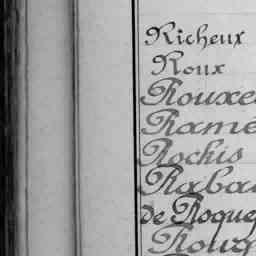 Richeux
Roux
Rouxe
Ramé
Rochis
Raba
de Roque
Rouz